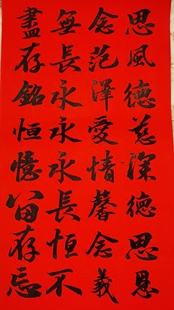 思念無盡
風范長存
德澤永銘
慈愛永恒
深情永憶
德馨長留
思念恒存
恩義不忘